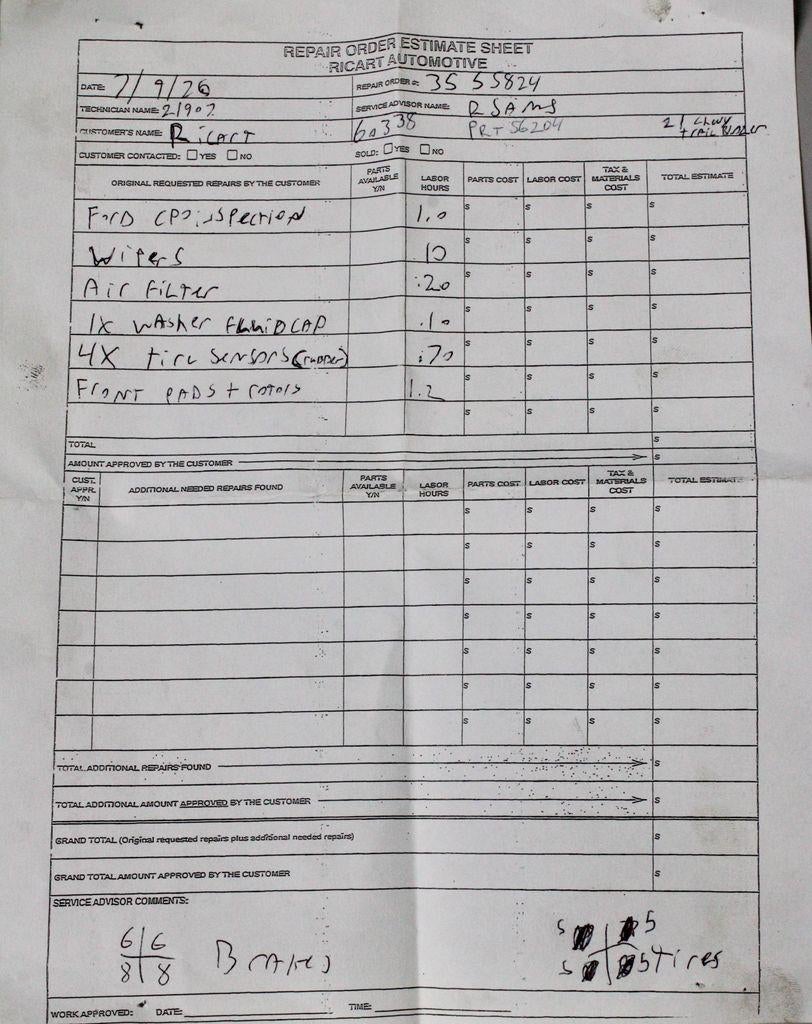 REPAIR ORDER ESTIMATE SHEET
RICART AUTOMOTIVE
DATE: 7/9/26 REPAIR ORDER #: 35 55824
TECHNICIAN NAME: 21907 SERVICE ADVISOR NAME: R SAMS
CUSTOMER'S NAME: Ricart 60338 PRT 56204 21 Chevy
CUSTOMER CONTACTED: ☐ YES ☐ NO SOLD: ☐ YES ☐ NO
ORIGINAL REQUESTED REPAIRS BY THE CUSTOMER PARTS AVAILABLE Y/N LABOR HOURS PARTS COST LABOR COST TAX & MATERIALS COST TOTAL ESTIMATE
Ford CPO inspection 1.0 $ $ $ $
Wipers 10 $ $ $ $
Air Filter .20 $ $ $ $
1x washer fluid CAP .10 $ $ $ $
4x tire sensors (rubber) .70 $ $ $ $
Front pads + rotors 1.2 $ $ $ $
$ $ $ $
TOTAL $
AMOUNT APPROVED BY THE CUSTOMER $
CUST. APPR. Y/N ADDITIONAL NEEDED REPAIRS FOUND PARTS AVAILABLE Y/N LABOR HOURS PARTS COST LABOR COST TAX & MATERIALS COST TOTAL ESTIMATE
$ $ $ $
$ $ $ $
$ $ $ $
$ $ $ $
$ $ $ $
$ $ $ $
$ $ $ $
TOTAL ADDITIONAL REPAIRS FOUND $
TOTAL ADDITIONAL AMOUNT APPROVED BY THE CUSTOMER $
GRAND TOTAL (Original requested repairs plus additional needed repairs) $
GRAND TOTAL AMOUNT APPROVED BY THE CUSTOMER $
SERVICE ADVISOR COMMENTS:
6 6 5 5
8 8 Brakes 5 5 tires
WORK APPROVED: DATE: TIME: